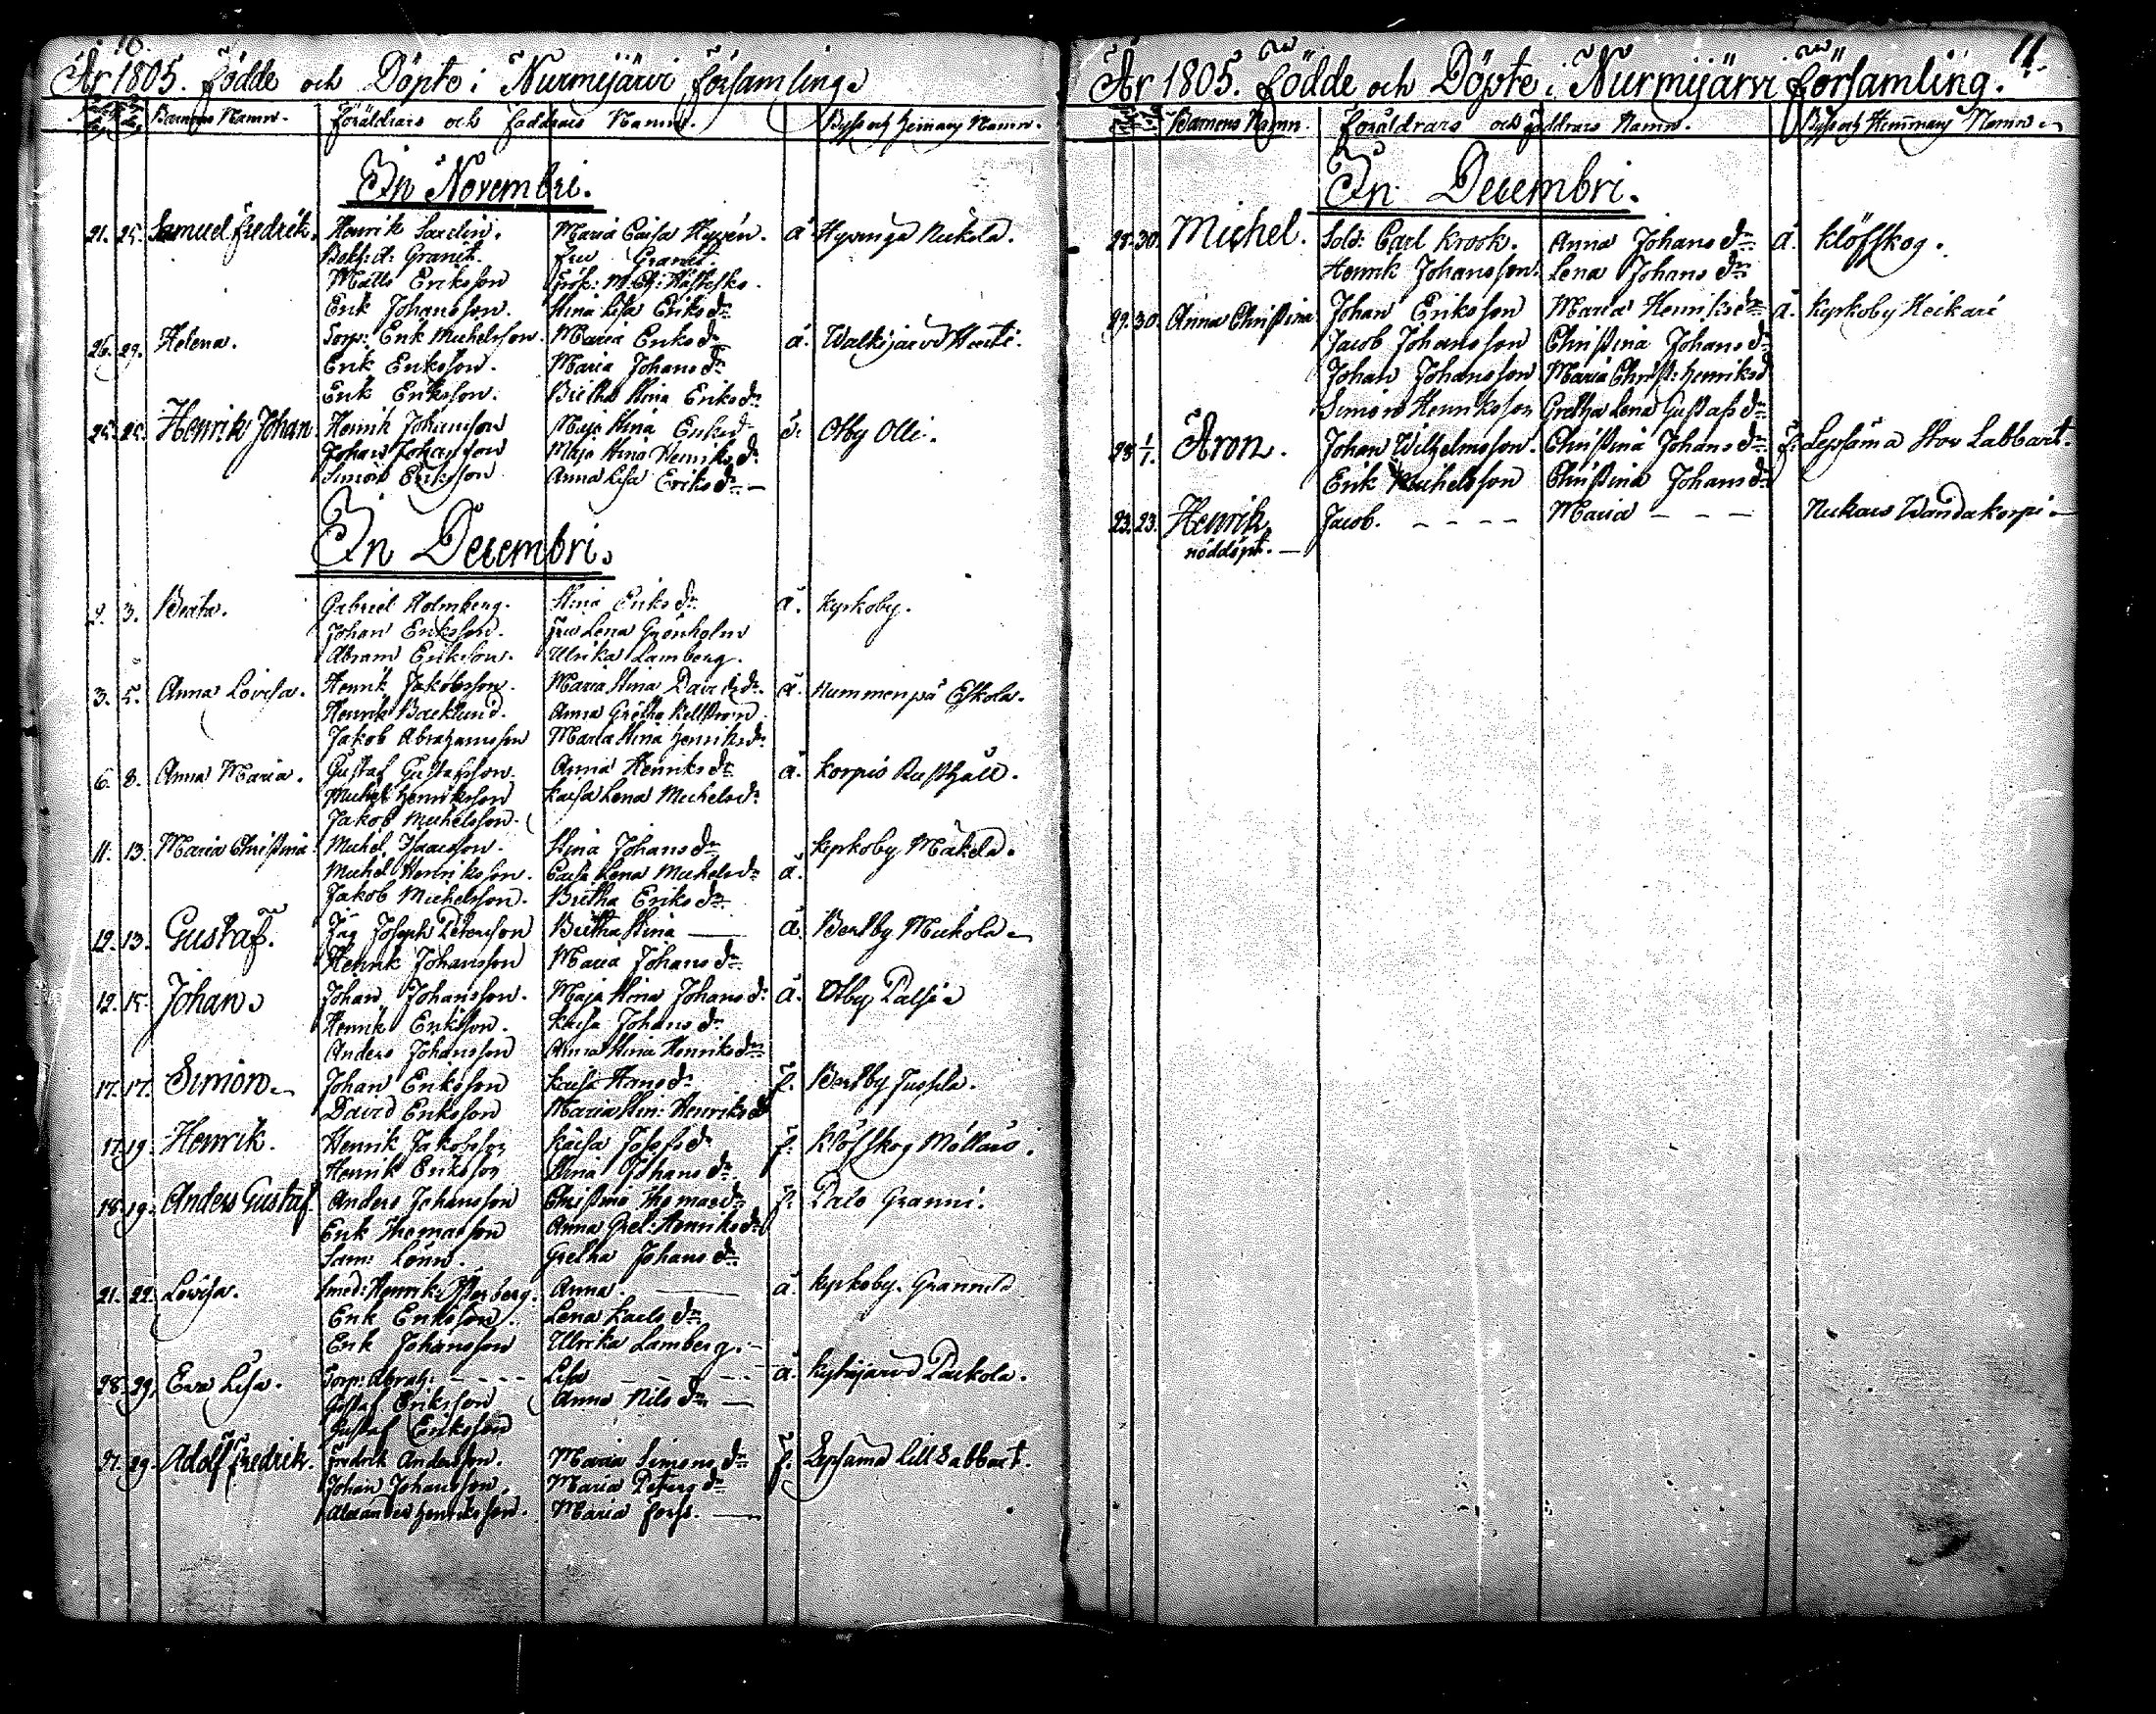 10.
År 1805. Födde och Döpte i Nurmijärvi församling.
Barnens Namn. Föräldrars och Faddrars Namn. Byss och Hemmans Namn.
In Novembri.
21. 25. Samuel Fredrik. Henrik Saxelin. Maria Caisa Hysén. ä. Hyvinga Nickola.
Bokh: A: Granit. Fru Granit.
Matts Eriksson
Erik Johansson. Stina Lisa Eriks dr
26. 29. Helena. Torp: Erik Michelsson. Maria Eriks dr ä. Walkijärvi
Erik Eriksson. Maria Johans dr
Erik Eriksson. Britha Stina Eriks dr
25. 25. Henrik Johan Henrik Johansson Maja Stina Eriks dr ä. Olby Olli.
Johan Johansson Maja Stina Henriks dr
Simon Eriksson Anna Lisa Eriks dr
In Decembri.
2. 3. Beata. Gabriel Holmberg. Stina Eriks dr ä. Kyrkoby.
Johan Eriksson. Fru Lena Grönholm
Abram Eriksson. Ulrika Lamberg.
3. 5. Anna Lovisa. Henrik Jakobsson. Maria Stina Davids dr ä. Nummenpä Eskola.
Henrik Backlund. Anna Gretha Kellström
Jakob Abrahamsson Maria Stina Henriks dr
6. 8. Anna Maria. Gustaf Gustafsson. Anna Henriks dr ä. Korpis Rusthåll.
Michel Henriksson Kaisa Lena Michels dr
Jakob Michelsson.
11. 13. Maria Christina Michel Isaacsson. Stina Johans dr Kyrkoby Mäkelä.
Michel Henriksson. Caisa Lena Michels dr ä.
Jakob Michelsson. Britha Eriks dr
12. 13. Gustaf. Joseph Petersson Britha Stina ä. Berlby Mickola
Henrik Johansson Maria Johans dr
12. 15. Johan Johan Johansson. Maja Stina Johans dr ä. Olby Palsi
Henrik Eriksson. Kaisa Johans dr
Anders Johansson Anna Stina Henriks dr
17. 17. Simon Johan Eriksson Kaisa Hans dr f. Berlby Jussila.
David Eriksson Maria Stin: Henriks dr
17. 19. Henrik. Henrik Jakobsson Kaisa Josefs dr f. Klöfskog Möllars.
Henrik Eriksson Stina Johans dr
18. 19. Anders Gustaf. Anders Johansson Christina Thomas dr f. Palo Granni.
Erik Thomasson Anna Gret: Henriks dr
Sam: Lönn. Gretha Johans dr
21. 22. Lovisa. Smed: Henrik Österberg. Anna. ä. Kyrkoby. Grannila
Erik Eriksson. Lena Carls dr
Erik Johansson Ulrika Lamberg.
28. 29. Eva Lisa. Torp: Abrah: Lisa ä. Kytäjärvi
Gustaf Eriksson Anna Nils dr
Gustaf Eriksson
27. 29. Adolf Fredrik. Fredrik Andersson. Maria Simons dr f. Lepsama Lill Labbart.
Johan Johansson. Maria Peters dr
Alexander Henriksson. Maria Forss.
11.
År 1805. Födde och Döpte i Nurmijärvi församling.
Barnens Namn. Föräldrars och Faddrars Namn. Byss och Hemmans Namn
In Decembri.
28. 30. Michel. Sold: Carl Krook. Anna Johans dr ä. Klöfskog.
Henrik Johansson. Lena Johans dr
29. 30. Anna Christina Johan Eriksson Maria Henriks dr ä. Kyrkoby Heikari
Jacob Johansson Christina Johans dr
Johan Johansson Maria Christ: Henriks d
Simon Henriksson Gretha Lena Gustafs dr
28 1/1. Aron. Johan Wilhelmsson. Christina Johans dr f. Lepsama Stor Labbart.
Erik Michelsson Christina Johans dr
23. 23. Henrik Jacob. Maria Nukars Wandakorpi
nöddöpt.